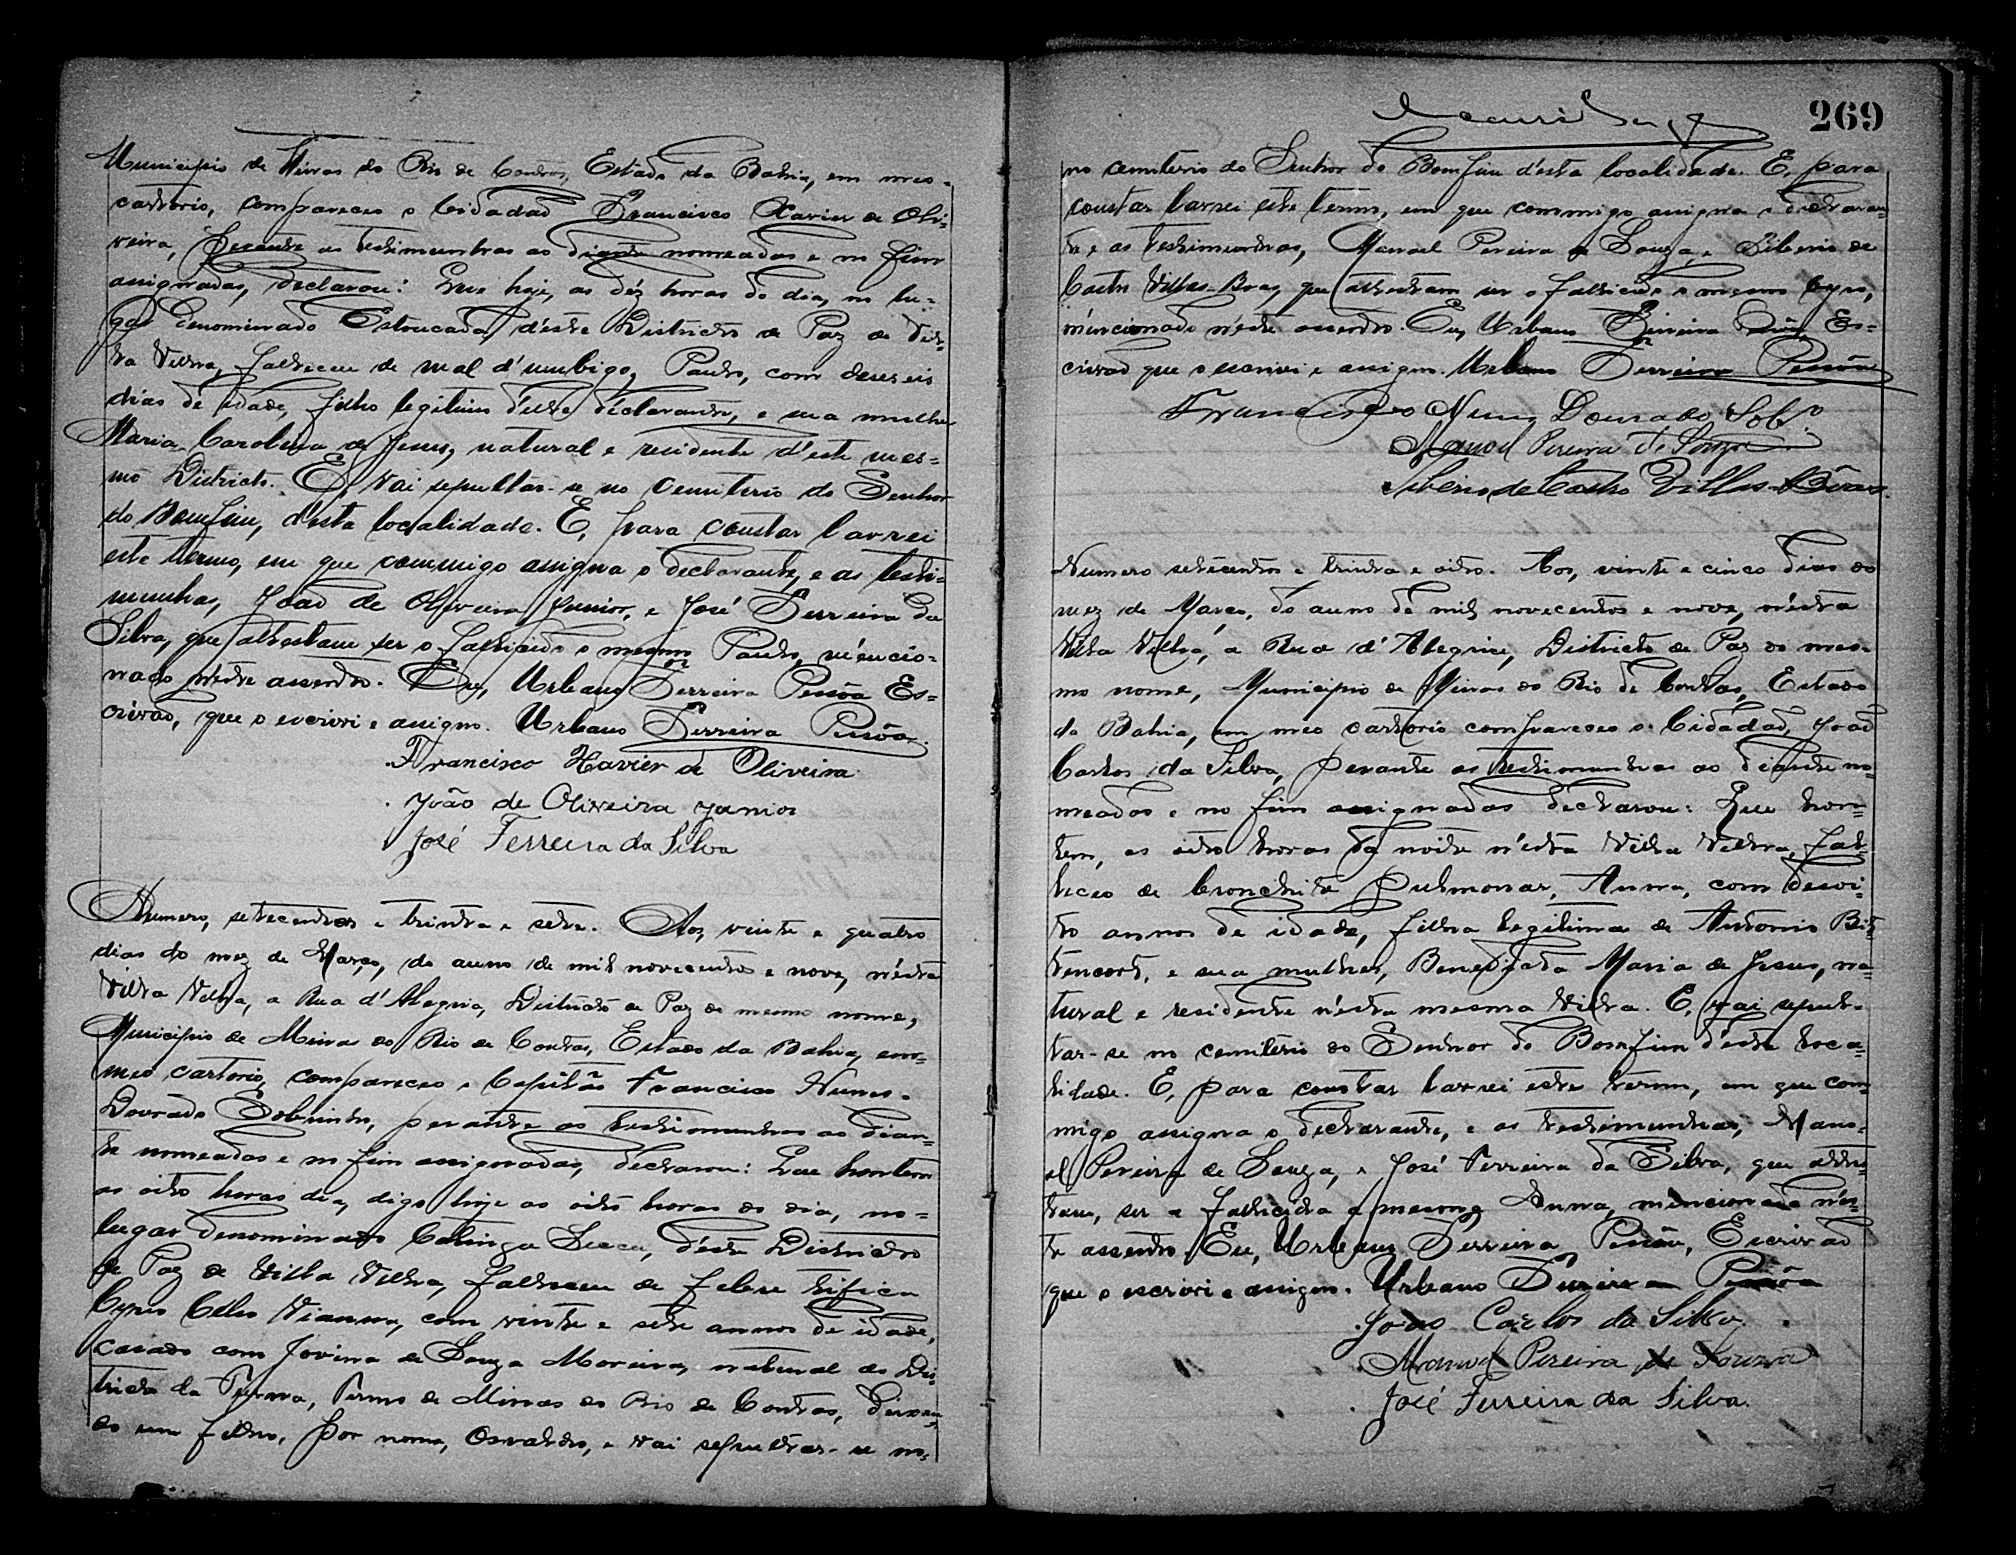 Municipio de Minas do Rio de Contas, Estado da Bahia, em meo
cartorio, compareceo o Cidadaõ Francisco Xavier de Oli-
veira, perante as testimunhas ao diante nomeadas e no fim
assignadas, declarou: Que hoje, as déz horas do dia, no lu-
gar denominado Estoucada, d'este Districto de Paz de Vil-
la Velha, falleceu de mal d'umbigo, Paulo, com deseseis
dias de idade, filho legitimo d'elle declarante, e sua mulher
Maria Carolina de Jesus, natural e residente d'este mes-
mo Districto. E, vai sepultar-se no Cemiterio do Senhor
do Bomfim, d'esta localidade. E, para constar lavrei
este termo, em que commigo assigna o declarante, e as testi-
munhas, Joaõ de Oliveira Junior, e José Ferreira da
Silva, que attestam ser o fallecido o mesmo Paulo, mencio-
nado n'este assento. Eu, Urbano Ferreira Pessôa Es-
crivaõ, que o escrivi e assigno. Urbano Ferreira Pessôa.
Francisco Xavier de Oliveira
João de Oliveira Junior
José Ferreira da Silva
Numero, setecentos e trinta e sete. Aos, vinte e quatro
dias do mez de Março, do anno de mil novecentos e nove, n'esta
Villa Velha, a Rua d'Alegria, Districto de Paz do mesmo nome,
Municipio de Minas do Rio de Contas, Estado da Bahia, em
meo cartorio, compareceo o Capitão Francisco Nunes
Dourado Sobrinho, perante as testimunhas ao dian-
te nomeadas e no fim assignadas, declarou: Que hontem
as oito horas dia, digo hoje as oito horas do dia, no
lugar denominado Catinga Secca, d'este Districto
de Paz de Villa Velha, falleceu de febre tifica
Cyro Celso Vianna, com vinte e sete annos de idade,
casado com Jovina de Souza Moreira, natural do Dis-
tricto da Furna, Termo de Minas do Rio de Contas, deixan-
do um filho, por nome, Osvaldo, e vai sepultar-se no
269
no cemiterio do Senhor do Bomfim d'esta localidade. E, para
constar lavrei este termo, em que commigo assigna o declaran-
te, e as testimunhas, Manoel Pereira de Souza, e Siberio de
Castro Villas-Boas, que attestam ser o fallecido o mesmo Cyro,
mencionado n'este assento. Eu, Urbano Ferreira Pessôa, Es-
crivaõ que o escrivi e assigno. Urbano Ferreira Pessôa
Francisco Nunes Dourado Sobº.
Manoel Pereira de Souza
Siberio de Castro Villas-Bôas.
Numero setecentos e trinta e oito. Aos, vinte e cinco dias do
mez de Março, do anno de mil novecentos e nove, n'esta
Villa Velha, a Rua d'Alegria, Districto de Paz do mes-
mo nome, Municipio de Minas do Rio de Contas, Estado
da Bahia, em meo cartorio compareceo o Cidadaõ, Joaõ
Carlos da Silva, perante as testimunhas ao diante no-
meadas e no fim assignadas declarou: Que hon-
tem, as oito horas da noite n'esta Villa Velha, fal-
leceo de bronchite pulmonar, Anna, com desoi-
to annos de idade, filha legitima de Antonio Bit-
tencort, e sua mulher, Benedicta Maria de Jesus, na-
tural e residente n'esta mesma Villa. E, vai sepul-
tar-se no cemiterio do Senhor do Bomfim d'esta loca-
lidade. E, para constar lavrei este termo, em que com-
migo assigna o declarante, e as testimunhas, Mano-
el Pereira de Souza, e José Ferreira da Silva, que attes-
tam, ser a fallecida a mesma Anna, mencionada n'es-
te assento. Eu, Urbano Ferreira Pessôa, Escrivaõ
que o escrivi e assigno. Urbano Ferreira Pessôa
Joao Carlos da Silva.
Manoel Pereira de Souza
José Ferreira da Silva.